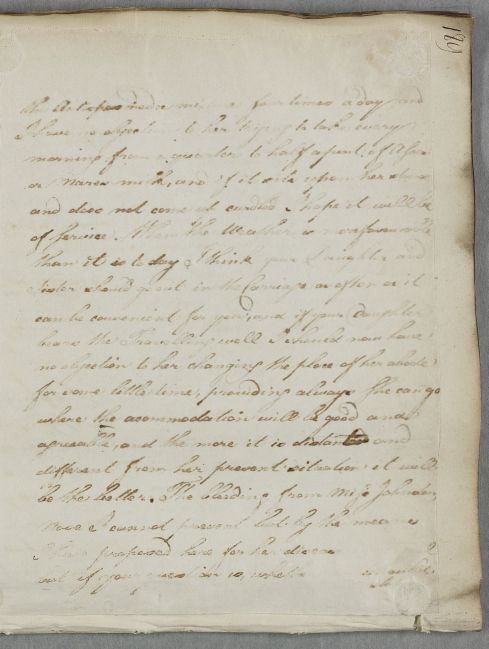 189
four times a day and
I have no objection to her trying to take every
morning from a quarter to half a pint of
or Mares milk, and if it sits upon her
and does not come up curdled I hope it will be
of Service. When the Weather is more favourable
than it is to day I think your Daughter and
Sister should go out in the Carriage as often as it
can be convenient for you, and if your Daughter
bears the Travelling well I should now have
no objection to her changing the place of her abode
for some little time, providing always She can go
where the accommodation will be good and
agreeable, and the more it is distant and
different from her present situation it will
be the better. The bleeding from Miss Johnston
Nose I cannot prevent but by the means
I have proposed here for her disease
but if your question is, whether